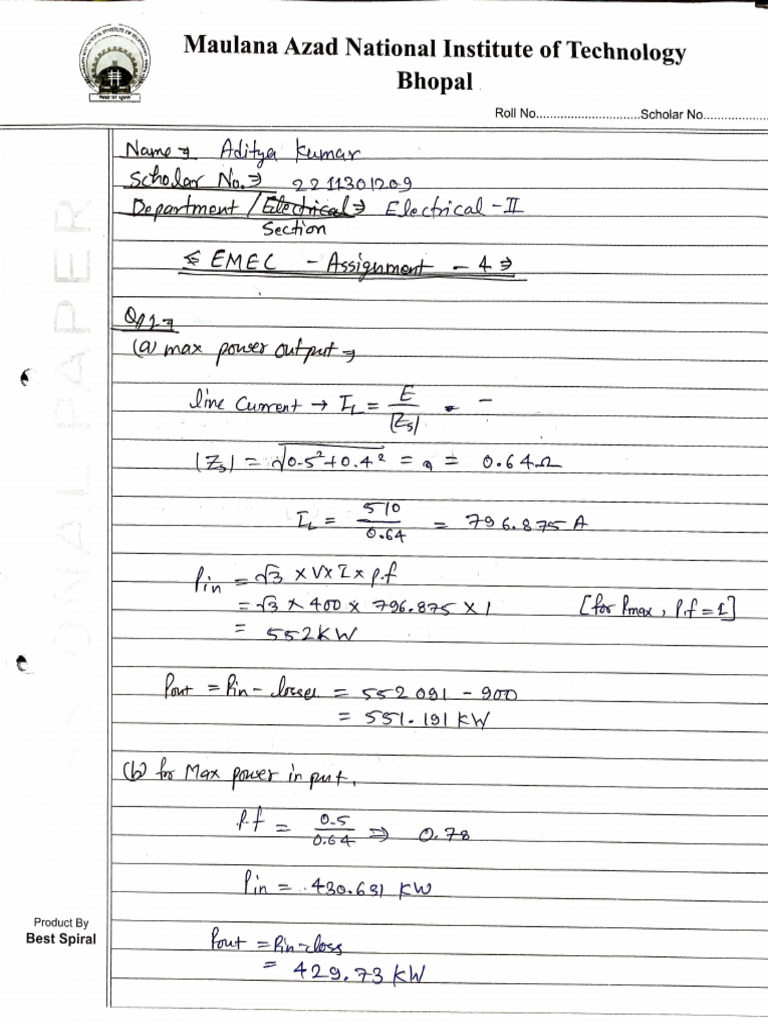 Maulana Azad National Institute of Technology
Bhopal
Roll No.............................Scholar No..................
Name → Aditya Kumar
Scholar No. ⇒ 2211301209
Department / Electrical ⇒ Electrical - II
Section
⇐ EMEC - Assignment - 4 ⇒
(a) max power output →
line Current → I_L = E/|Zs| = -
|Zs| = √0.5²+0.4² = = 0.64Ω
I_L = 510/0.64 = 796.875 A
Pin = √3 × V × I × p.f
= √3 × 400 × 796.875 × 1 [for Pmax, P.f = 1]
= 552 KW
Pout = Pin - losses = 552 091 - 900
= 551.191 KW
(b) for Max power input,
P.f = 0.5/0.64 ⇒ 0.78
Pin = .430.631 KW
Pout = Pin - loss
= 429.73 KW
Product By
Best Spiral
PERSONAL PAPER